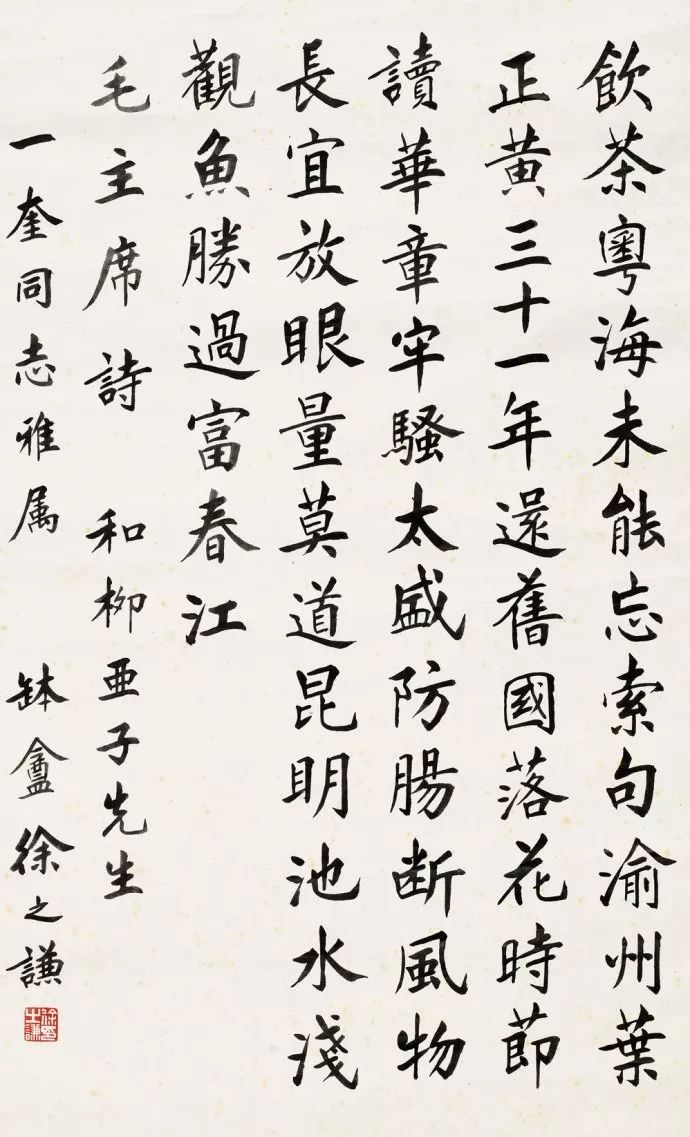 飲茶粵海未能忘索句渝州葉
正黄三十一年還舊國落花時節
讀華章牢騷太盛防腸断風物
長宜放眼量莫道昆明池水淺
觀魚勝過富春江
毛主席詩 和柳亜子先生
一奎同志雅属 缽盦徐之謙
徐之謙印